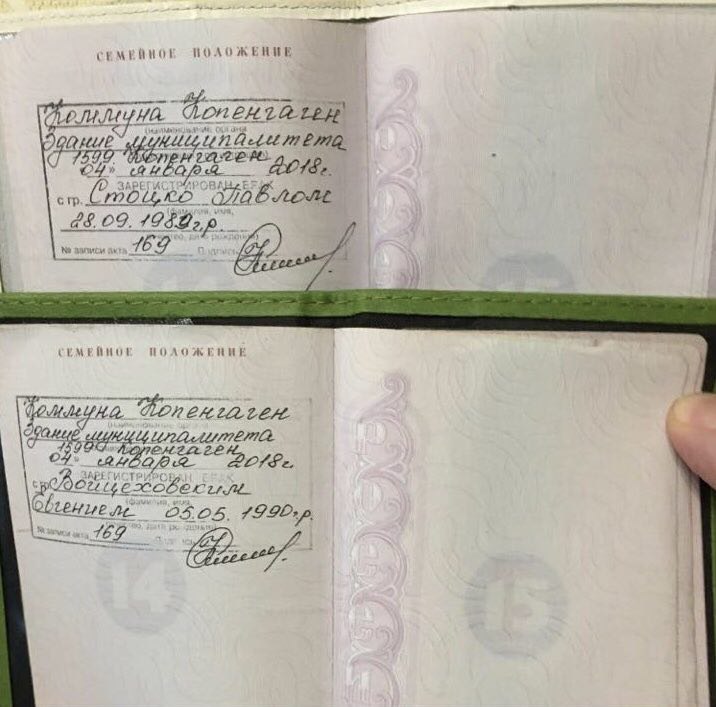 СЕМЕЙНОЕ ПОЛОЖЕНИЕ
Коммуна Копенгаген
(наименование органа
Здание муниципалитета
1599 Копенгаген
"04" января 2018г.
ЗАРЕГИСТРИРОВАН БРАК
с гр. Стоцко Павлом
(фамилия, имя,
28.09.1989г.р.
отчество, дата рождения)
№ записи акта 169 Подпись
СЕМЕЙНОЕ ПОЛОЖЕНИЕ
Коммуна Копенгаген
(наименование органа
Здание муниципалитета
1599 Копенгаген
"04" января 2018г.
ЗАРЕГИСТРИРОВАН БРАК
с гр. Войцеховским
(фамилия, имя,
Евгением 05.05.1990г.р.
отчество, дата рождения)
№ записи акта 169 Подпись
14
15